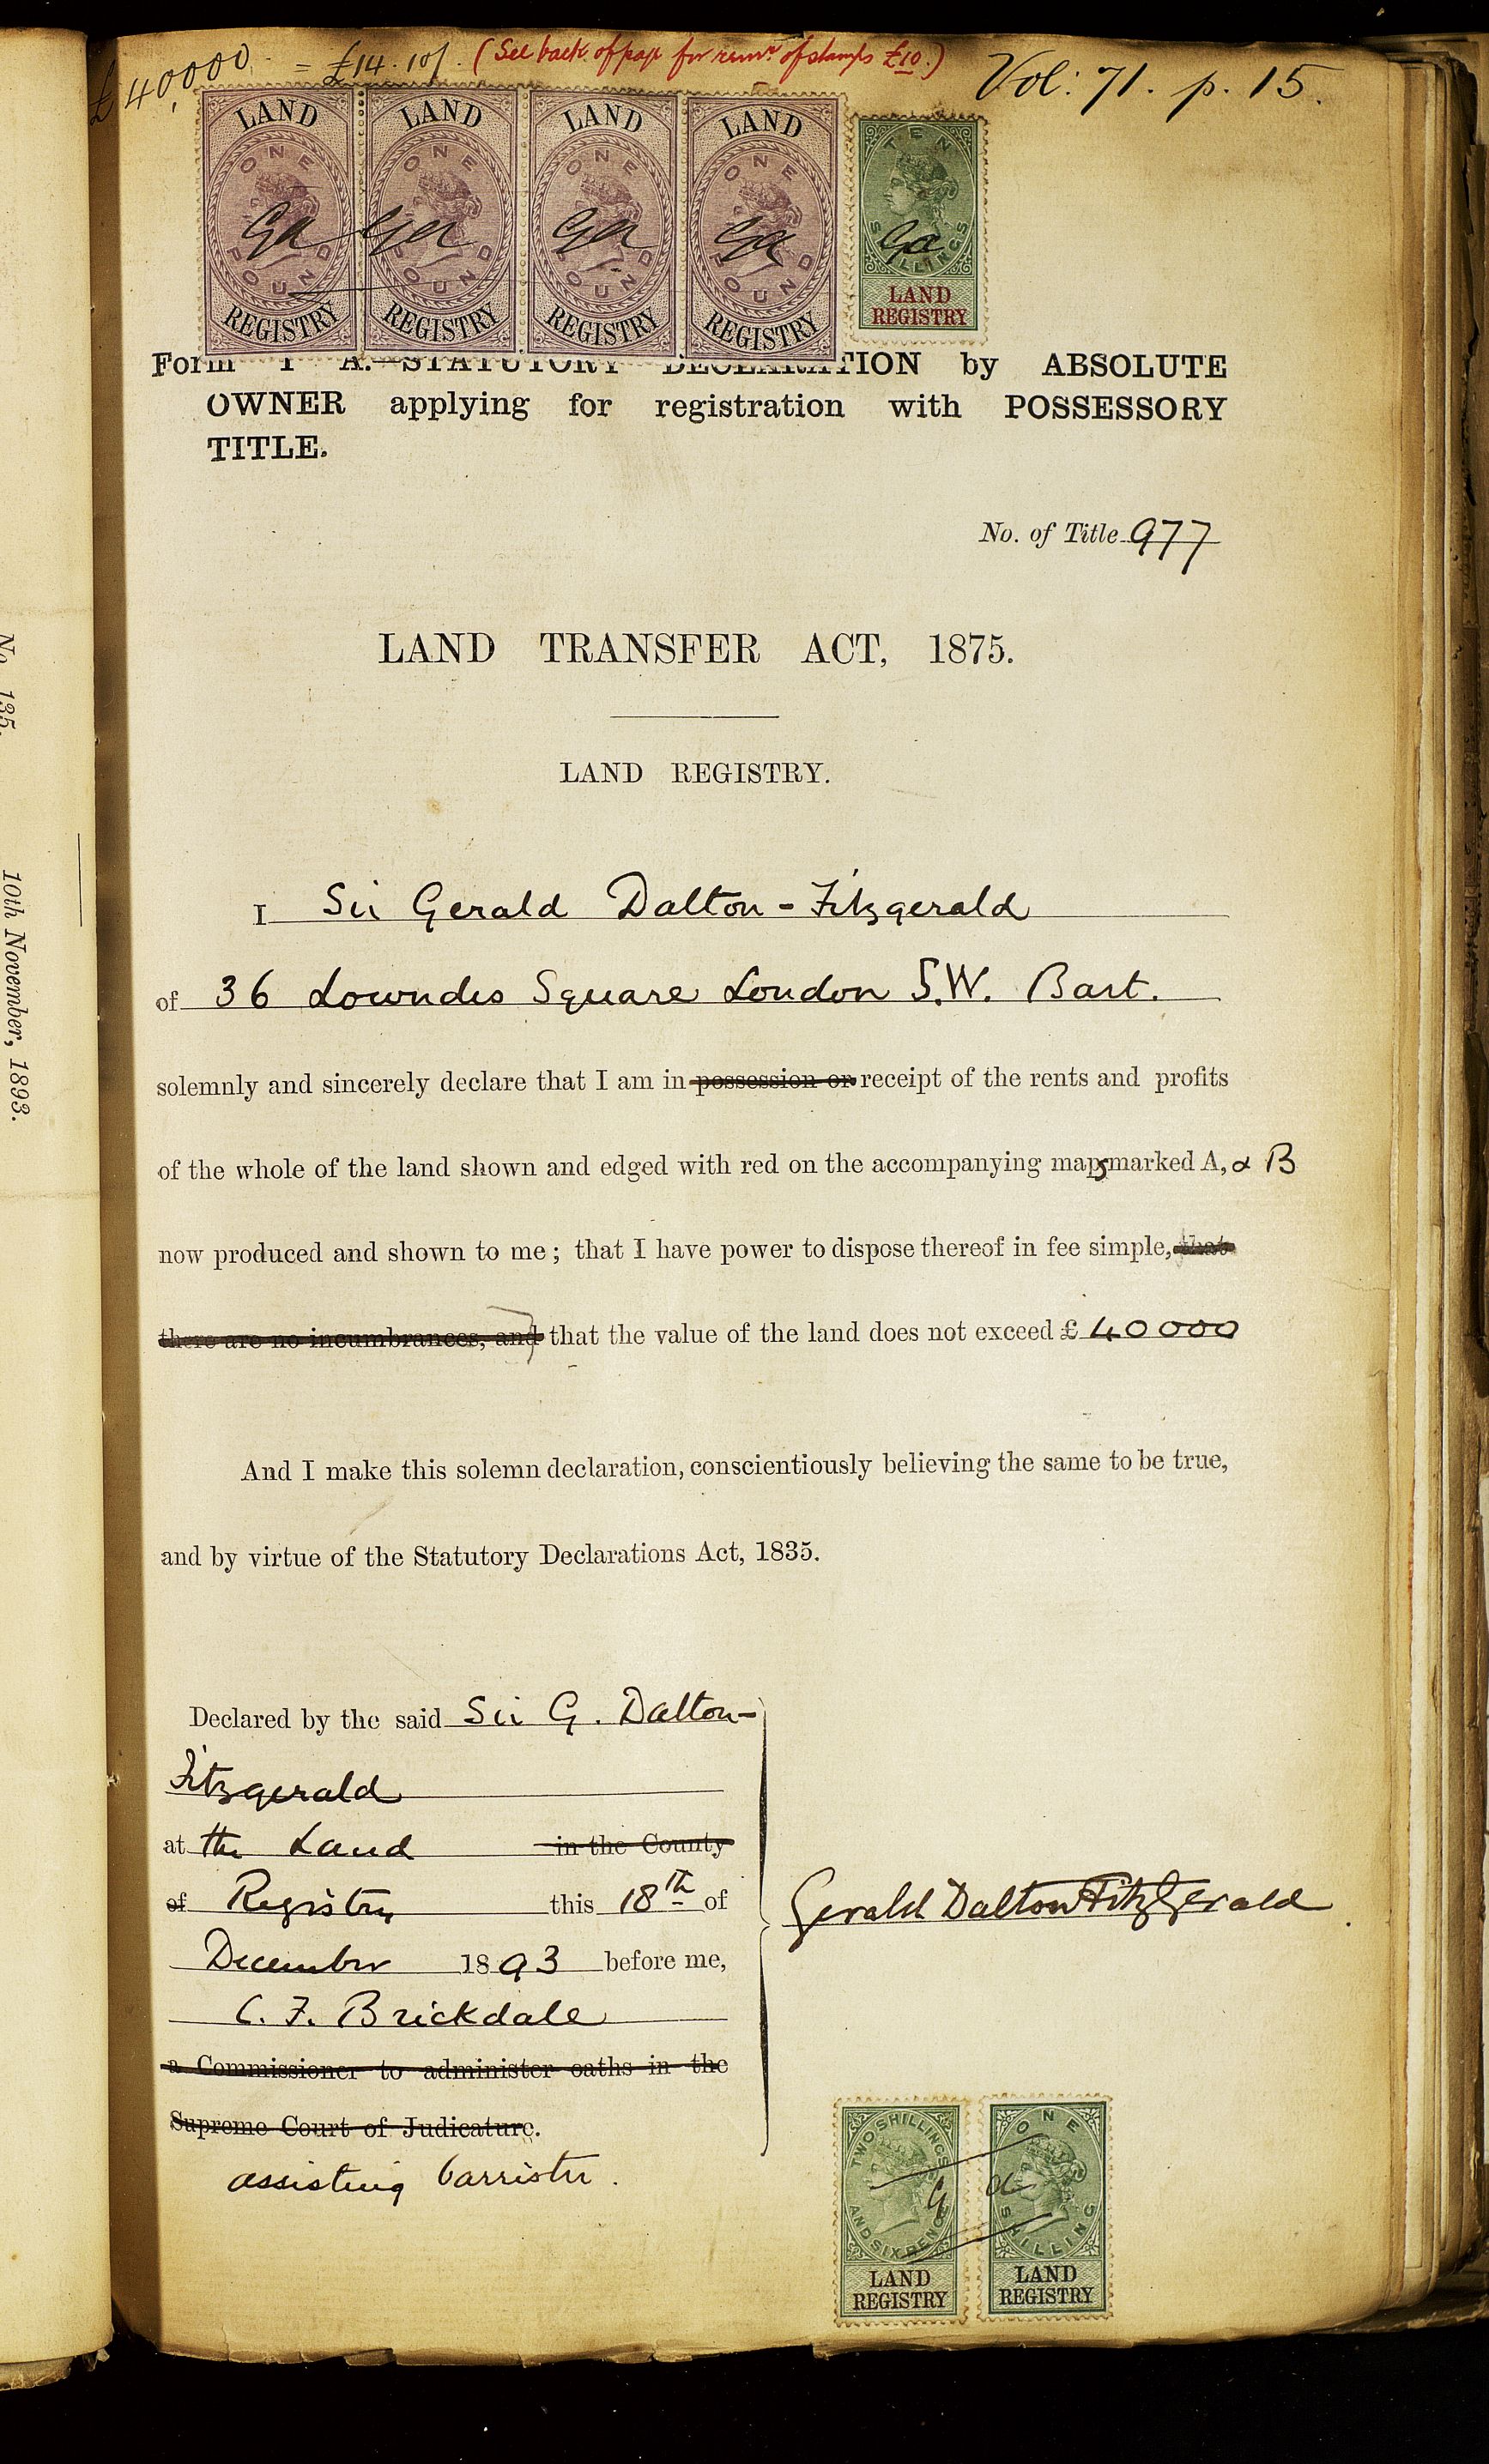 £40,000 = £14.10/. (See back of page for remr of stamps £10.)
Vol: 71. p. 15.
LAND LAND LAND LAND
ONE ONE ONE ONE TEN
Ga Ga Ga Ga Ga
POUND POUND POUND POUND SHILLINGS
REGISTRY REGISTRY REGISTRY REGISTRY LAND REGISTRY
Form 1 A. STATUTORY DECLARATION by ABSOLUTE
OWNER applying for registration with POSSESSORY
TITLE.
No. of Title 977
LAND TRANSFER ACT, 1875.
LAND REGISTRY.
I Sir Gerald Dalton-Fitzgerald
of 36 Lowndes Square London S.W. Bart.
solemnly and sincerely declare that I am in possession or receipt of the rents and profits
of the whole of the land shown and edged with red on the accompanying maps marked A, & B
now produced and shown to me; that I have power to dispose thereof in fee simple, that
there are no incumbrances, and that the value of the land does not exceed £ 40000
And I make this solemn declaration, conscientiously believing the same to be true,
and by virtue of the Statutory Declarations Act, 1835.
Declared by the said Sir G. Dalton-
Fitzgerald
at the Land in the County
of Registry this 18th of
December 1893 before me,
C. F. Brickdale
a Commissioner to administer oaths in the
Supreme Court of Judicature.
assisting barrister.
Gerald Dalton FitzGerald
TWO SHILLINGS AND SIX PENCE
LAND
REGISTRY
ONE SHILLING
LAND
REGISTRY
G a
No. 135.
10th November, 1893.